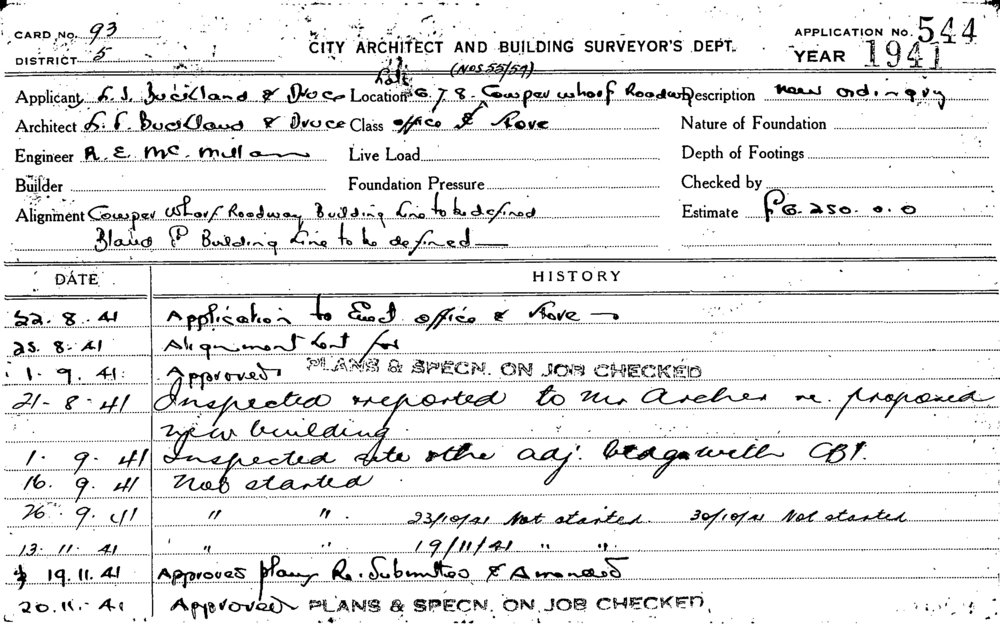 CARD No. 93
DISTRICT 5
CITY ARCHITECT AND BUILDING SURVEYOR'S DEPT.
APPLICATION No. 544
YEAR 1941
(Nos 55/59)
Lots
Applicant Buckland & Druce Location 6. 7. 8. Cowper Wharf Roadway Description new ordinary
Architect Buckland & Druce Class office & Store Nature of Foundation
Engineer R. E. Mc. Millan Live Load Depth of Footings
Builder Foundation Pressure Checked by
Alignment Cowper Wharf Roadway Building Line to be defined Estimate £6.250.0.0
Bland Building Line to be defined
DATE HISTORY
22. 8. 41 Application to Erect office & Store
25. 8. 41 Alignment sent for
1. 9. 41 Approved PLANS & SPECN. ON JOB CHECKED
21-8-41 Inspected & reported to Mr Archer re. proposed
new building.
1. 9. 41 Inspected site & the adj. bldgs with CBI.
16. 9. 41 Not started
26. 9. 41 " " 23/10/41 Not started. 30/10/41 Not started
13. 11. 41 " " 19/11/41 " "
19. 11. 41 Approved plans Re. Submitted & Amended
20. 11. 41 Approved PLANS & SPECN. ON JOB CHECKED